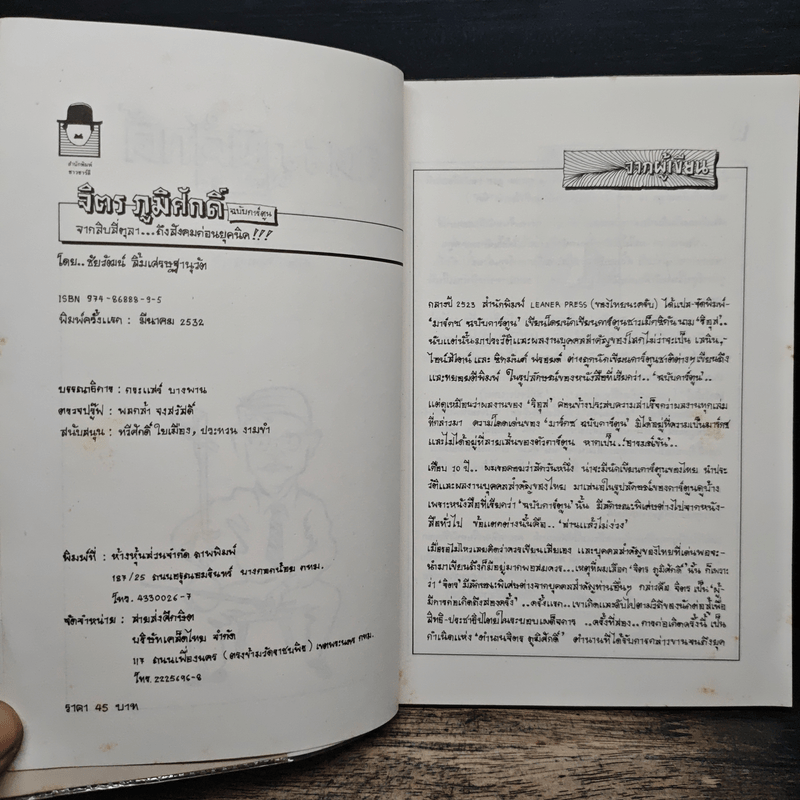 สำนักพิมพ์
ชาวชาร์ลี
จิตร ภูมิศักดิ์ ฉบับการ์ตูน
จากสิบสี่ตุลา...ถึงสังคมก่อนยุคนิค!!!
โดย..ชัยวัฒน์ ลิ้มเศรษฐานุวัต
ISBN 974-86888-9-5
พิมพ์ครั้งแรก : มีนาคม 2532
บรรณาธิการ : กระแสร์ บางพาน
ตรวจปรู๊ฟ : พลกล้า จงสวัสดิ์
สนับสนุน : ทวีศักดิ์ ใบเมือง, ประทวน งามขำ
พิมพ์ที่ : ห้างหุ้นส่วนจำกัด ภาพพิมพ์
187/25 ถนนอรุณอมรินทร์ บางกอกน้อย กทม.
โทร. 4330026-7
จัดจำหน่าย : สายส่งศึกษิต
บริษัทเคล็ดไทย จำกัด
117 ถนนเฟื่องนคร (ตรงข้ามวัดราชบพิธ) เขตพระนคร กทม.
โทร. 2225698-8
ราคา 45 บาท
จากผู้เขียน
กลางปี 2523 สำนักพิมพ์ LEANER PRESS (ของไทยนะครับ) ได้แปล-จัดพิมพ์-
'มาร์กซ ฉบับการ์ตูน' เขียนโดยนักเขียนการ์ตูนชาวเม็กซิกันนาม 'ริอุส'..
นับแต่นั้นมาประวัติและผลงานบุคคลสำคัญของโลกไม่ว่าจะเป็น เลนิน,-
ไอน์สไตน์ และ ซิกมันด์ ฟรอยด์ ต่างถูกนักเขียนการ์ตูนชาติต่างๆเขียนถึง
และทยอยตีพิมพ์ ในรูปลักษณ์ของหนังสือที่เรียกว่า..'ฉบับการ์ตูน'..
แต่ดูเหมือนว่าผลงานของ 'ริอุส' ค่อนข้างประสบความสำเร็จกว่าผลงานทุกเล่ม
ที่กล่าวมา ความโดดเด่นของ 'มาร์กซ ฉบับการ์ตูน' มิได้อยู่ที่ความเป็นมาร์กซ
และไม่ได้อยู่ที่ลายเส้นของตัวการ์ตูน หากเป็น..'อารมณ์ขัน'..
เกือบ 10 ปี.. ผมรอคอยว่าสักวันหนึ่ง น่าจะมีนักเขียนการ์ตูนของไทย นำประ
วัติและผลงานบุคคลสำคัญของไทย มาเสนอในรูปลักษณ์ของการ์ตูนดูบ้าง
เพราะหนังสือที่เรียกว่า 'ฉบับการ์ตูน' นั้น มีลักษณะพิเศษต่างไปจากหนัง-
สือทั่วไป ข้อแตกต่างนั้นคือ..'อ่านแล้วไม่ง่วง'
เมื่อรอไม่ไหวเลยคิดว่าควรเขียนเสียเอง และบุคคลสำคัญของไทยที่เด่นพอจะ-
นำมาเขียนถึงก็มีอยู่มากพอสมควร...เหตุที่ผมเลือก 'จิตร ภูมิศักดิ์' นั้น ก็เพราะ
ว่า 'จิตร' มีลักษณะพิเศษต่างจากบุคคลสำคัญท่านอื่นๆ กล่าวคือ จิตร เป็น 'ผู้-
มีการก่อเกิดถึงสองครั้ง' ..ครั้งแรก..เขาเกิดและดับไปตามวิถีของนักต่อสู้เพื่อ
สิทธิ-ประชาธิปไตยในระบอบเผด็จการ ..ครั้งที่สอง..การก่อเกิดครั้งนี้ เป็น
กำเนิดแห่ง 'ตำนานจิตร ภูมิศักดิ์' ตำนานที่ได้รับการกล่าวขานจนถึงยุค